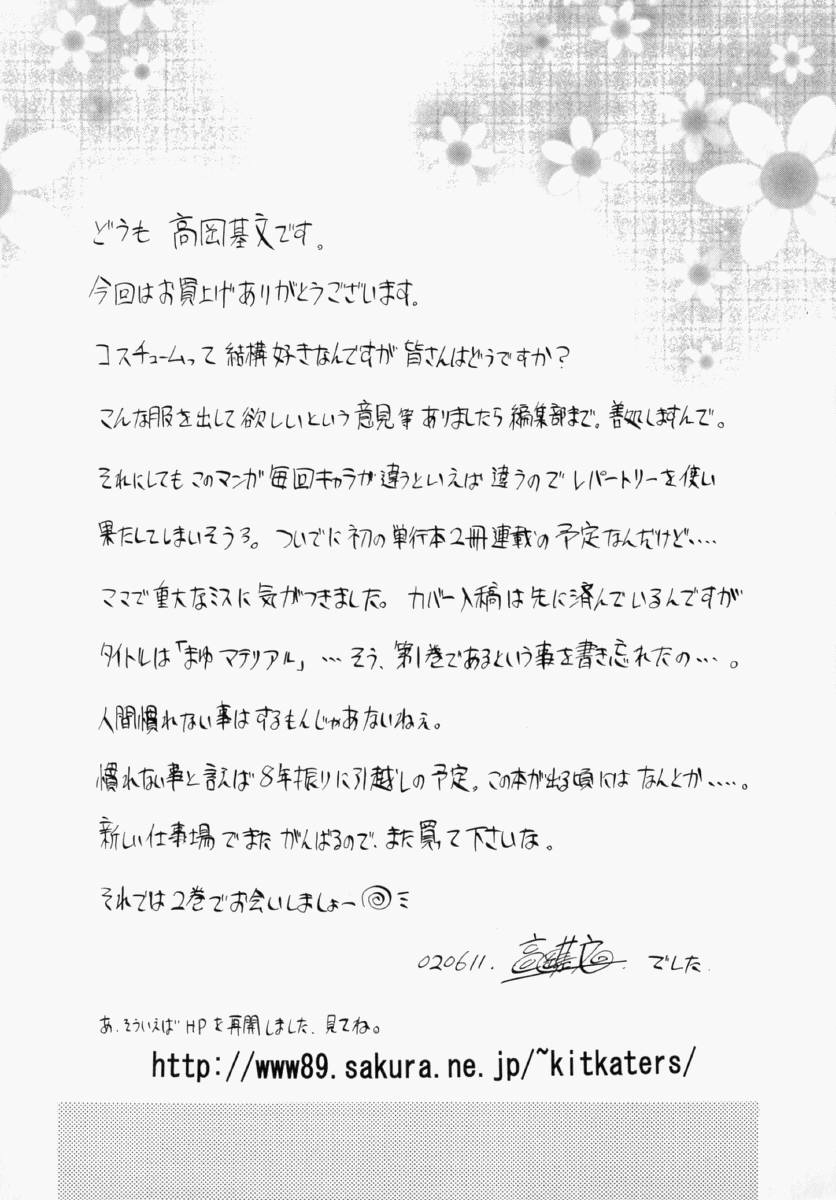 どうも 高岡基文です。
今回はお買上げありがとうございます。
コスチュームって結構好きなんですが皆さんはどうですか?
こんな服を出して欲しいという意見等ありましたら編集部まで。善処しますんで。
それにしてもこのマンガ毎回キャラが違うといえば違うのでレパートリーを使い
果たしてしまいそうろ。ついでに初の単行本2冊連載の予定なんだけど‥‥
ママで重大なミスに気がつきました。カバー入稿は先に済んでいるんですが
タイトルは「まゆマテリアル」…そう、第1巻であるという事を書き忘れたの…。
人間慣れない事はするもんじゃあないねえ。
慣れない事と言えば8年振りに引越しの予定。この本が出る頃にはなんとか‥‥。
新しい仕事場でまたがんばるので、また買って下さいな。
それでは2巻でお会いしましょー
020611. 高岡基文 でした.
あ、そういえばHPを再開しました、見てね。
http://www89.sakura.ne.jp/~kitkaters/